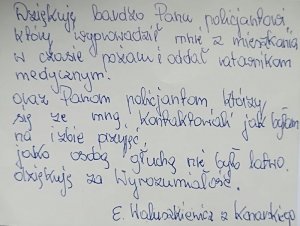 Dziękuję bardzo Panu policjantowi
który wyprowadził mnie z mieszkania
w czasie pożaru i oddał ratownikom
medycznym.
oraz Panom policjantom którzy
się ze mną kontaktowali jak byłam
na izbie przyjęć.
jako osobą głuchą nie było łatwo.
dziękuję za Wyrozumiałość.
E. Haluszkiewicz z Konarskiego